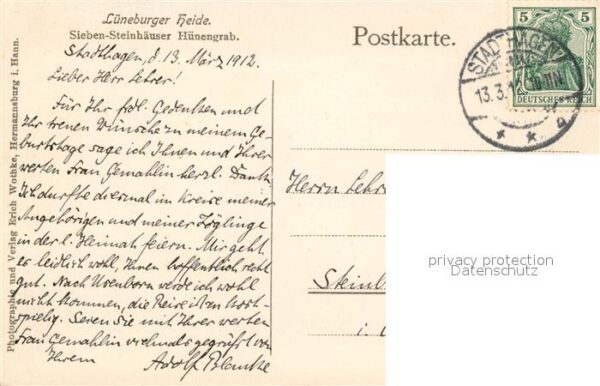 Lüneburger Heide.
Sieben-Steinhäuser Hünengrab.
Stadthagen, d. 13. März 1912.
Lieber Herr Lehrer!
Für Ihr frdl. Gedenken und
Ihre treuen Wünsche zu meinem Ge-
burtstage sage ich Ihnen und Ihrer
werten Frau Gemahlin herzl. Dank.
Ich durfte diesmal im Kreise meiner
Angehörigen und meiner Zöglinge
in der l. Heimat feiern. Mir geht
es leidlich wohl, Ihnen hoffentlich recht
gut. Nach werde ich wohl
nicht kommen, die Reise ist zu kost-
spielig. Seien Sie mit Ihrer werten
Frau Gemahlin vielmals gegrüßt von
Ihrem Adolf
Photographie und Verlag Erich Wothke, Hermannsburg i. Hann.
Postkarte.
5 5
DEUTSCHES REICH
STADTHAGEN
13.3.12
* * a
Herrn Lehr
privacy protection
Datenschutz
Steinb
i.